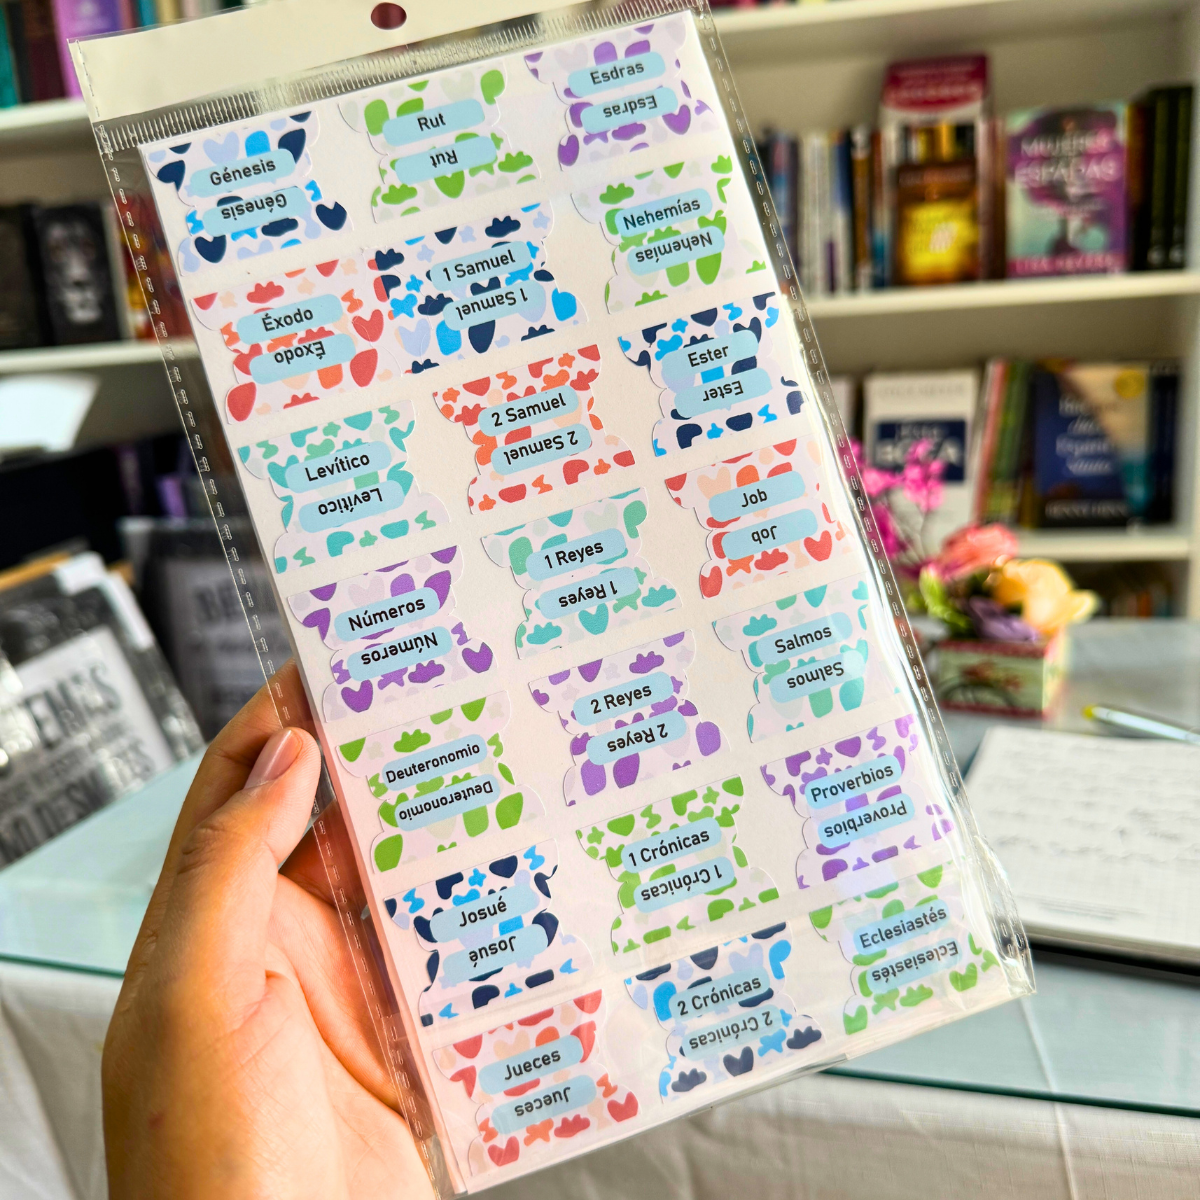 Génesis
Génesis
Éxodo
Éxodo
Levítico
Levítico
Números
Números
Deuteronomio
Deuteronomio
Josué
Josué
Jueces
Jueces
Rut
Rut
1 Samuel
1 Samuel
2 Samuel
2 Samuel
1 Reyes
1 Reyes
2 Reyes
2 Reyes
1 Crónicas
1 Crónicas
2 Crónicas
2 Crónicas
Esdras
Esdras
Nehemías
Nehemías
Ester
Ester
Job
Job
Salmos
Salmos
Proverbios
Proverbios
Eclesiastés
Eclesiastés
MUJERES
ESPADAS